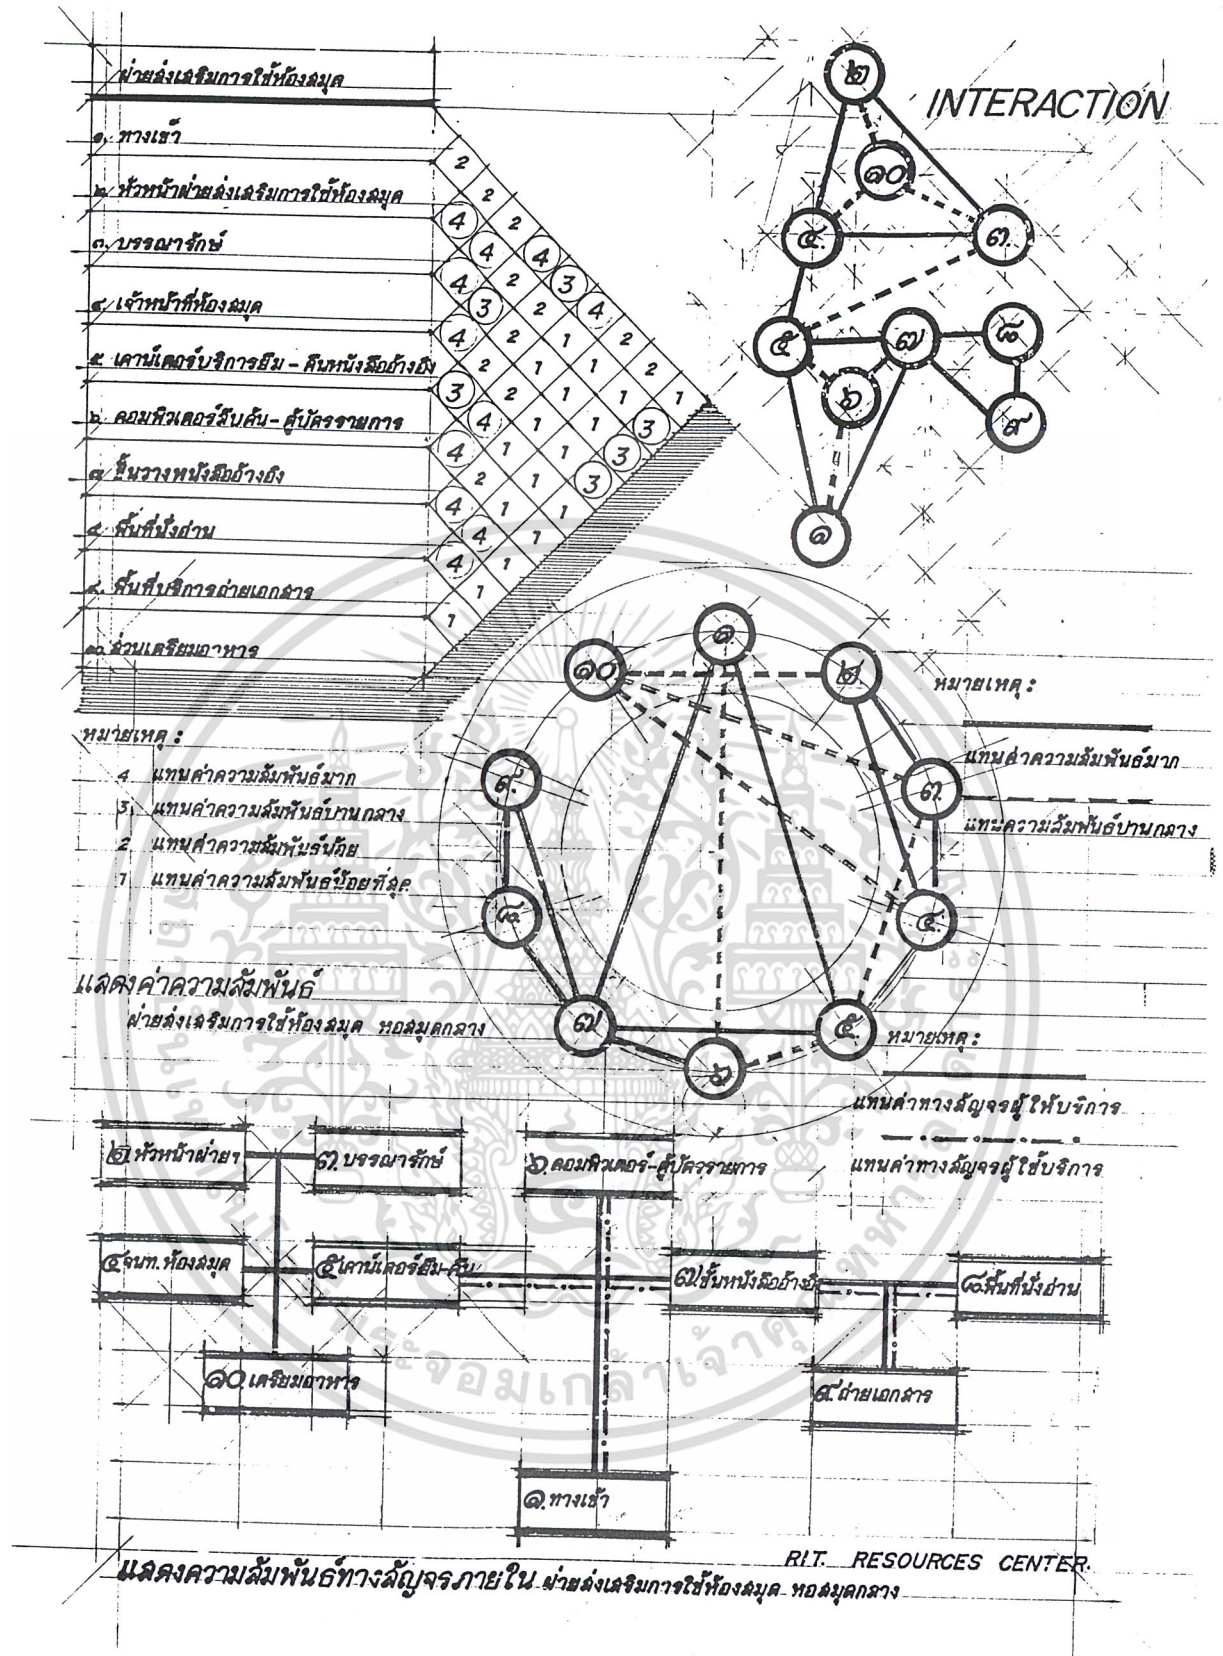 ฝ่ายส่งเสริมการใช้ห้องสมุด
๑. ทางเข้า
๒. หัวหน้าฝ่ายส่งเสริมการใช้ห้องสมุด
๓. บรรณารักษ์
๔. เจ้าหน้าที่ห้องสมุด
๕. เคาน์เตอร์บริการยืม - คืนหนังสืออ้างอิง
๖. คอมพิวเตอร์สืบค้น - ตู้บัตรรายการ
๗. ชั้นวางหนังสืออ้างอิง
๘. พื้นที่นั่งอ่าน
๙. พื้นที่บริการถ่ายเอกสาร
๑๐. ส่วนเตรียมอาหาร
2
2
4 2
4 4
4 2 3
3 2 4
4 2 1 2
2 1 1 2
3 2 1 1 1
4 1 1 3
4 1 1 3
2 1 3
4 1 1
4 1
4
1
1
INTERACTION
๒
๑๐
๔. ๓.
๕ ๗ ๘
๖ ๙
๑
๑.
๑๐ ๒.
๙. ๓.
๘. ๔.
๗ ๕.
๖
หมายเหตุ :
แทนค่าความสัมพันธ์มาก
แทนความสัมพันธ์ปานกลาง
หมายเหตุ :
4 แทนค่าความสัมพันธ์มาก
3. แทนค่าความสัมพันธ์ปานกลาง
2 แทนค่าความสัมพันธ์น้อย
1 แทนค่าความสัมพันธ์น้อยที่สุด
แสดงค่าความสัมพันธ์
ฝ่ายส่งเสริมการใช้ห้องสมุด หอสมุดกลาง
หมายเหตุ :
แทนค่าทางสัญจรผู้ให้บริการ
แทนค่าทางสัญจรผู้ใช้บริการ
๒. หัวหน้าฝ่ายฯ
๓. บรรณารักษ์
๖. คอมพิวเตอร์-ตู้บัตรรายการ
๔ จนท. ห้องสมุด
๕ เคาน์เตอร์ยืม-คืน
๗. ชั้นหนังสืออ้างอิง
๘. พื้นที่นั่งอ่าน
๑๐. เตรียมอาหาร
๙. ถ่ายเอกสาร
๑. ทางเข้า
RIT. RESOURCES CENTER.
แสดงความสัมพันธ์ทางสัญจรภายใน ฝ่ายส่งเสริมการใช้ห้องสมุด หอสมุดกลาง